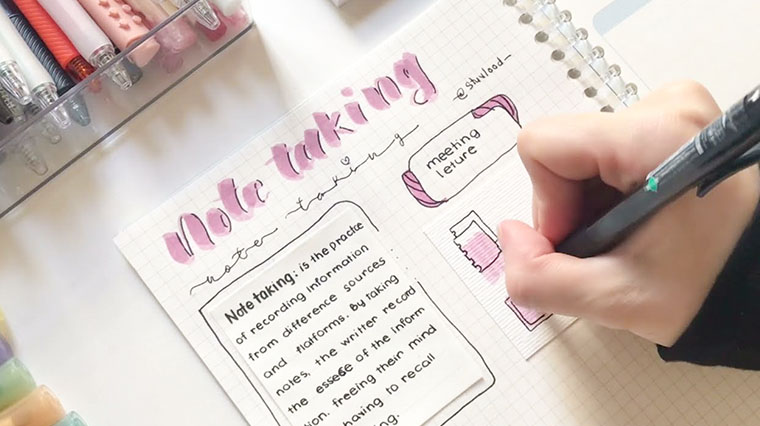 Note taking
note taking
@stuvlood_
meeting
leture
Note taking: is the practice
of recording information
from difference sources
and flatforms. By taking
notes, the writter record
the essese of the inform
ion. freeing their mind
having to recall